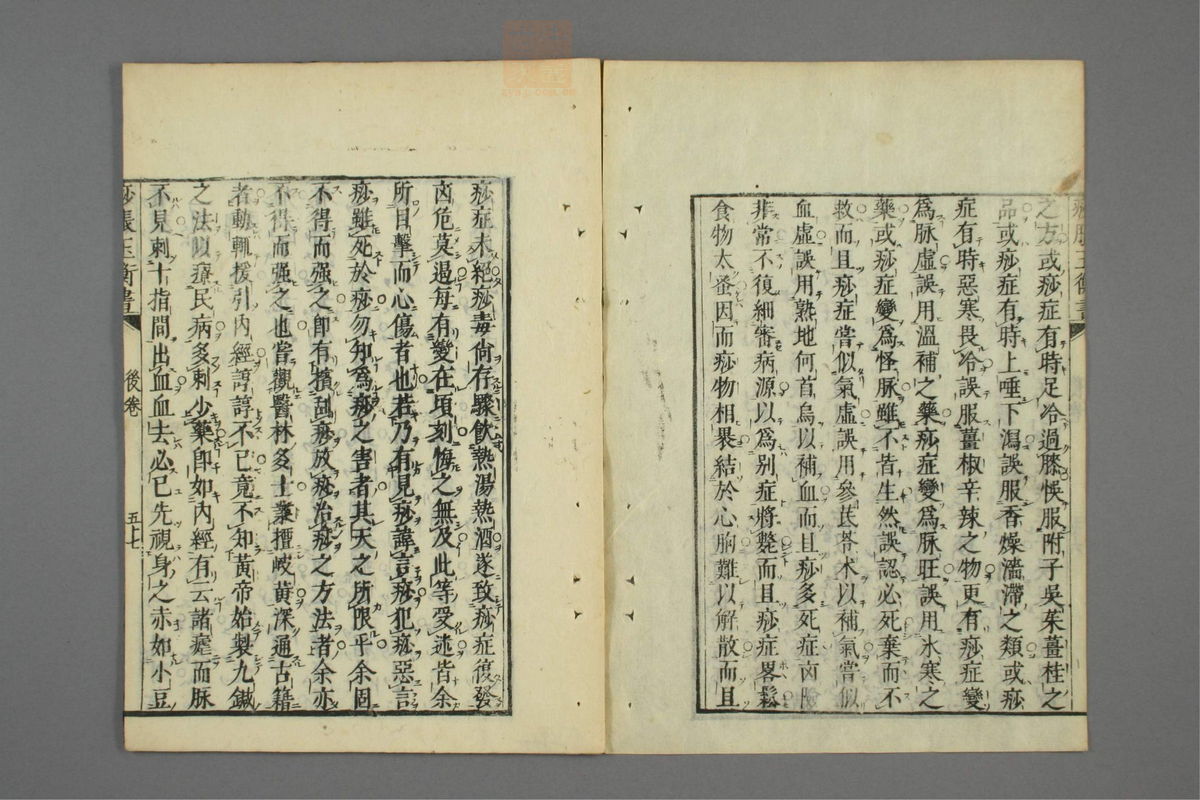 之方或痧症有時足冷過膝悞服附子吳茱薑桂之
品或痧症有時上唾下瀉誤服香燥濇滯之類或痧
症有時惡寒畏冷誤服薑椒辛辣之物更有痧症變
爲脉虛誤用溫補之藥痧症變爲脉旺誤用氷寒之
藥或痧症變爲怪脉雖不皆生然誤認必死棄而不
救而且痧症嘗似氣虛誤用參芪苓术以補氣嘗似
血虛誤用熟地何首烏以補血而且痧多死症㐫險
非常不復細審病源以爲别症將斃而且痧症畧鬆
食物太蚤因而痧物相暴結於心胸難以解散而且
痧症未絕痧毒尚存驟飮熱湯熱酒遂致痧症復發
㐫危莫遏每有變在頃刻悔之無及此等受迷皆余
所目擊而心傷者也若乃有見痧諱言痧犯痧惡言
痧雖死於痧勿知爲痧之害者其天之所限乎余固
不得而强之即有擯刮痧放痧治痧之方法者余亦
不得而强之也嘗觀醫林多士業擅岐黃深通古籍
者動輒援引內經諄諄不已竟不知黃帝始製九鍼
之法以療民病多刺少藥卽如內經有云諸瘧而脉
不見刺十指間出血血去必已先視身之赤如小豆
痧脹玉衡書
後卷
五十七